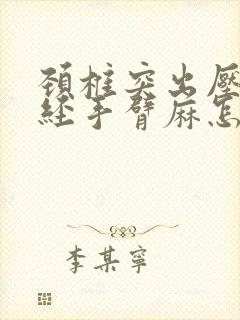 頸椎突出壓
經手臂麻怎
李某寧